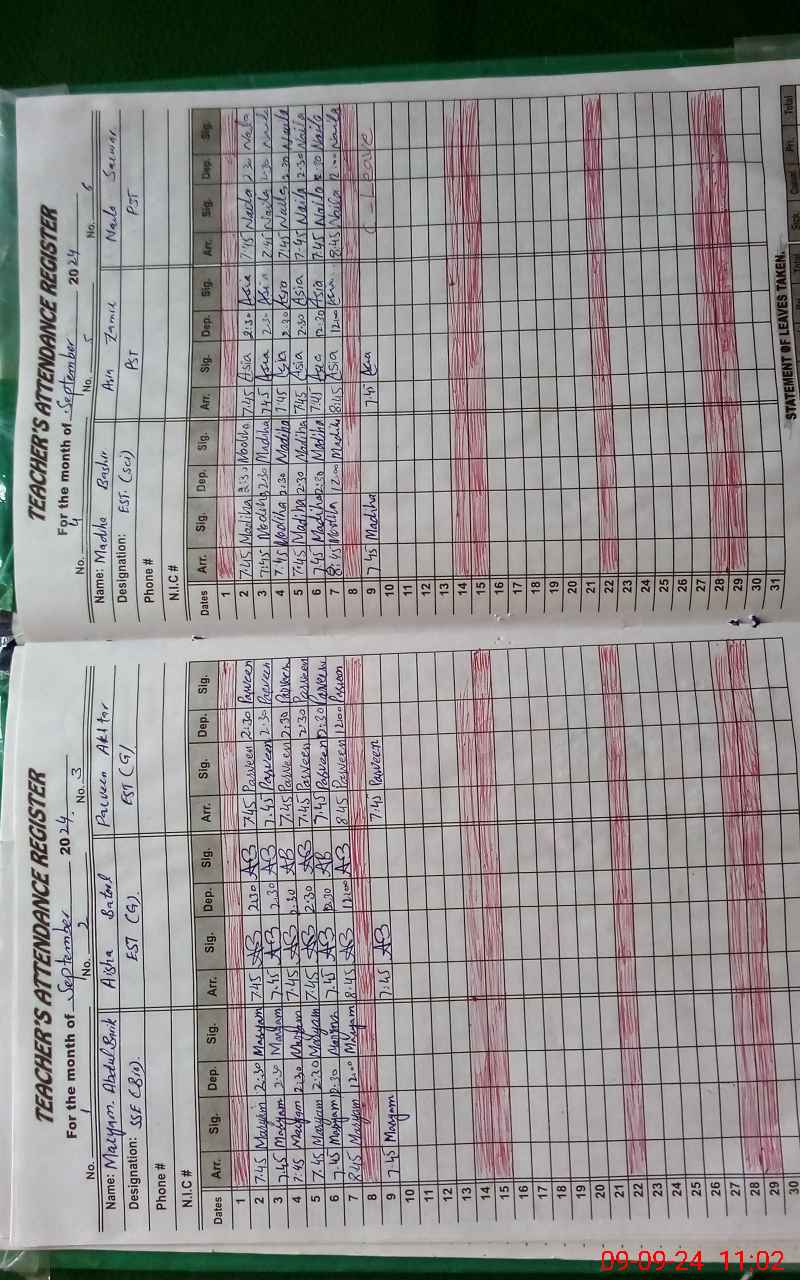 TEACHER'S ATTENDANCE REGISTER
For the month of September 2024.
No. 1 No. 2 No. 3
Name: Maryam Abdul Aisha Batool Parveen Akhtar
Designation: SSE (Bio). EST (G). EST (G)
Phone #
N.I.C #
Dates Arr. Sig. Dep. Sig. Arr. Sig. Dep. Sig. Arr. Sig. Dep. Sig.
1
2 7:45 Maryam 2:30 Maryam 7:45 AB 2:30 AB 7:45 Parveen 2:30 Parveen
3 7:45 Maryam 2:30 Maryam 7:45 AB 2:30 AB 7:45 Parveen 2:30 Parveen
4 7:45 Maryam 2:30 Maryam 7:45 AB 2:30 AB 7:45 Parveen 2:30 Parveen
5 7:45 Maryam 2:30 Maryam 7:45 AB 2:30 AB 7:45 Parveen 2:30 Parveen
6 7:45 Maryam 12:30 Maryam 7:45 AB 12:30 AB 7:45 Parveen 12:30 Parveen
7 8:45 Maryam 12:00 Maryam 8:45 AB 12:00 AB 8:45 Parveen 12:00 Parveen
8
9 7:45 Maryam 7:45 AB 7:45 Parveen
10
11
12
13
14
15
16
17
18
19
20
21
22
23
24
25
26
27
28
29
30
TEACHER'S ATTENDANCE REGISTER
For the month of September 2024
No. 4 No. 5 No. 6
Name: Madiha Bashir Asia Naila Sarwar
Designation: EST (Sci) PST PST
Phone #
N.I.C #
Dates Arr. Sig. Dep. Sig. Arr. Sig. Dep. Sig. Arr. Sig. Dep. Sig.
1
2 7:45 Madiha 2:30 Madiha 7:45 Asia 2:30 Asia 7:45 Naila 2:30 Naila
3 7:45 Madiha 2:30 Madiha 7:45 Asia 2:30 Asia 7:45 Naila 2:30 Naila
4 7:45 Madiha 2:30 Madiha 7:45 Asia 2:30 Asia 7:45 Naila 2:30 Naila
5 7:45 Madiha 2:30 Madiha 7:45 Asia 2:30 Asia 7:45 Naila 2:30 Naila
6 7:45 Madiha 12:30 Madiha 7:45 Asia 12:30 Asia 7:45 Naila 12:30 Naila
7 8:45 Madiha 12:00 Madiha 8:45 Asia 12:00 Asia 8:45 Naila 12:00 Naila
8
9 7:45 Madiha 7:45 Asia C - Leave
10
11
12
13
14
15
16
17
18
19
20
21
22
23
24
25
26
27
28
29
30
31
STATEMENT OF LEAVES TAKEN.
Total Sick Casual Pri. Total
09-09-24 11:02